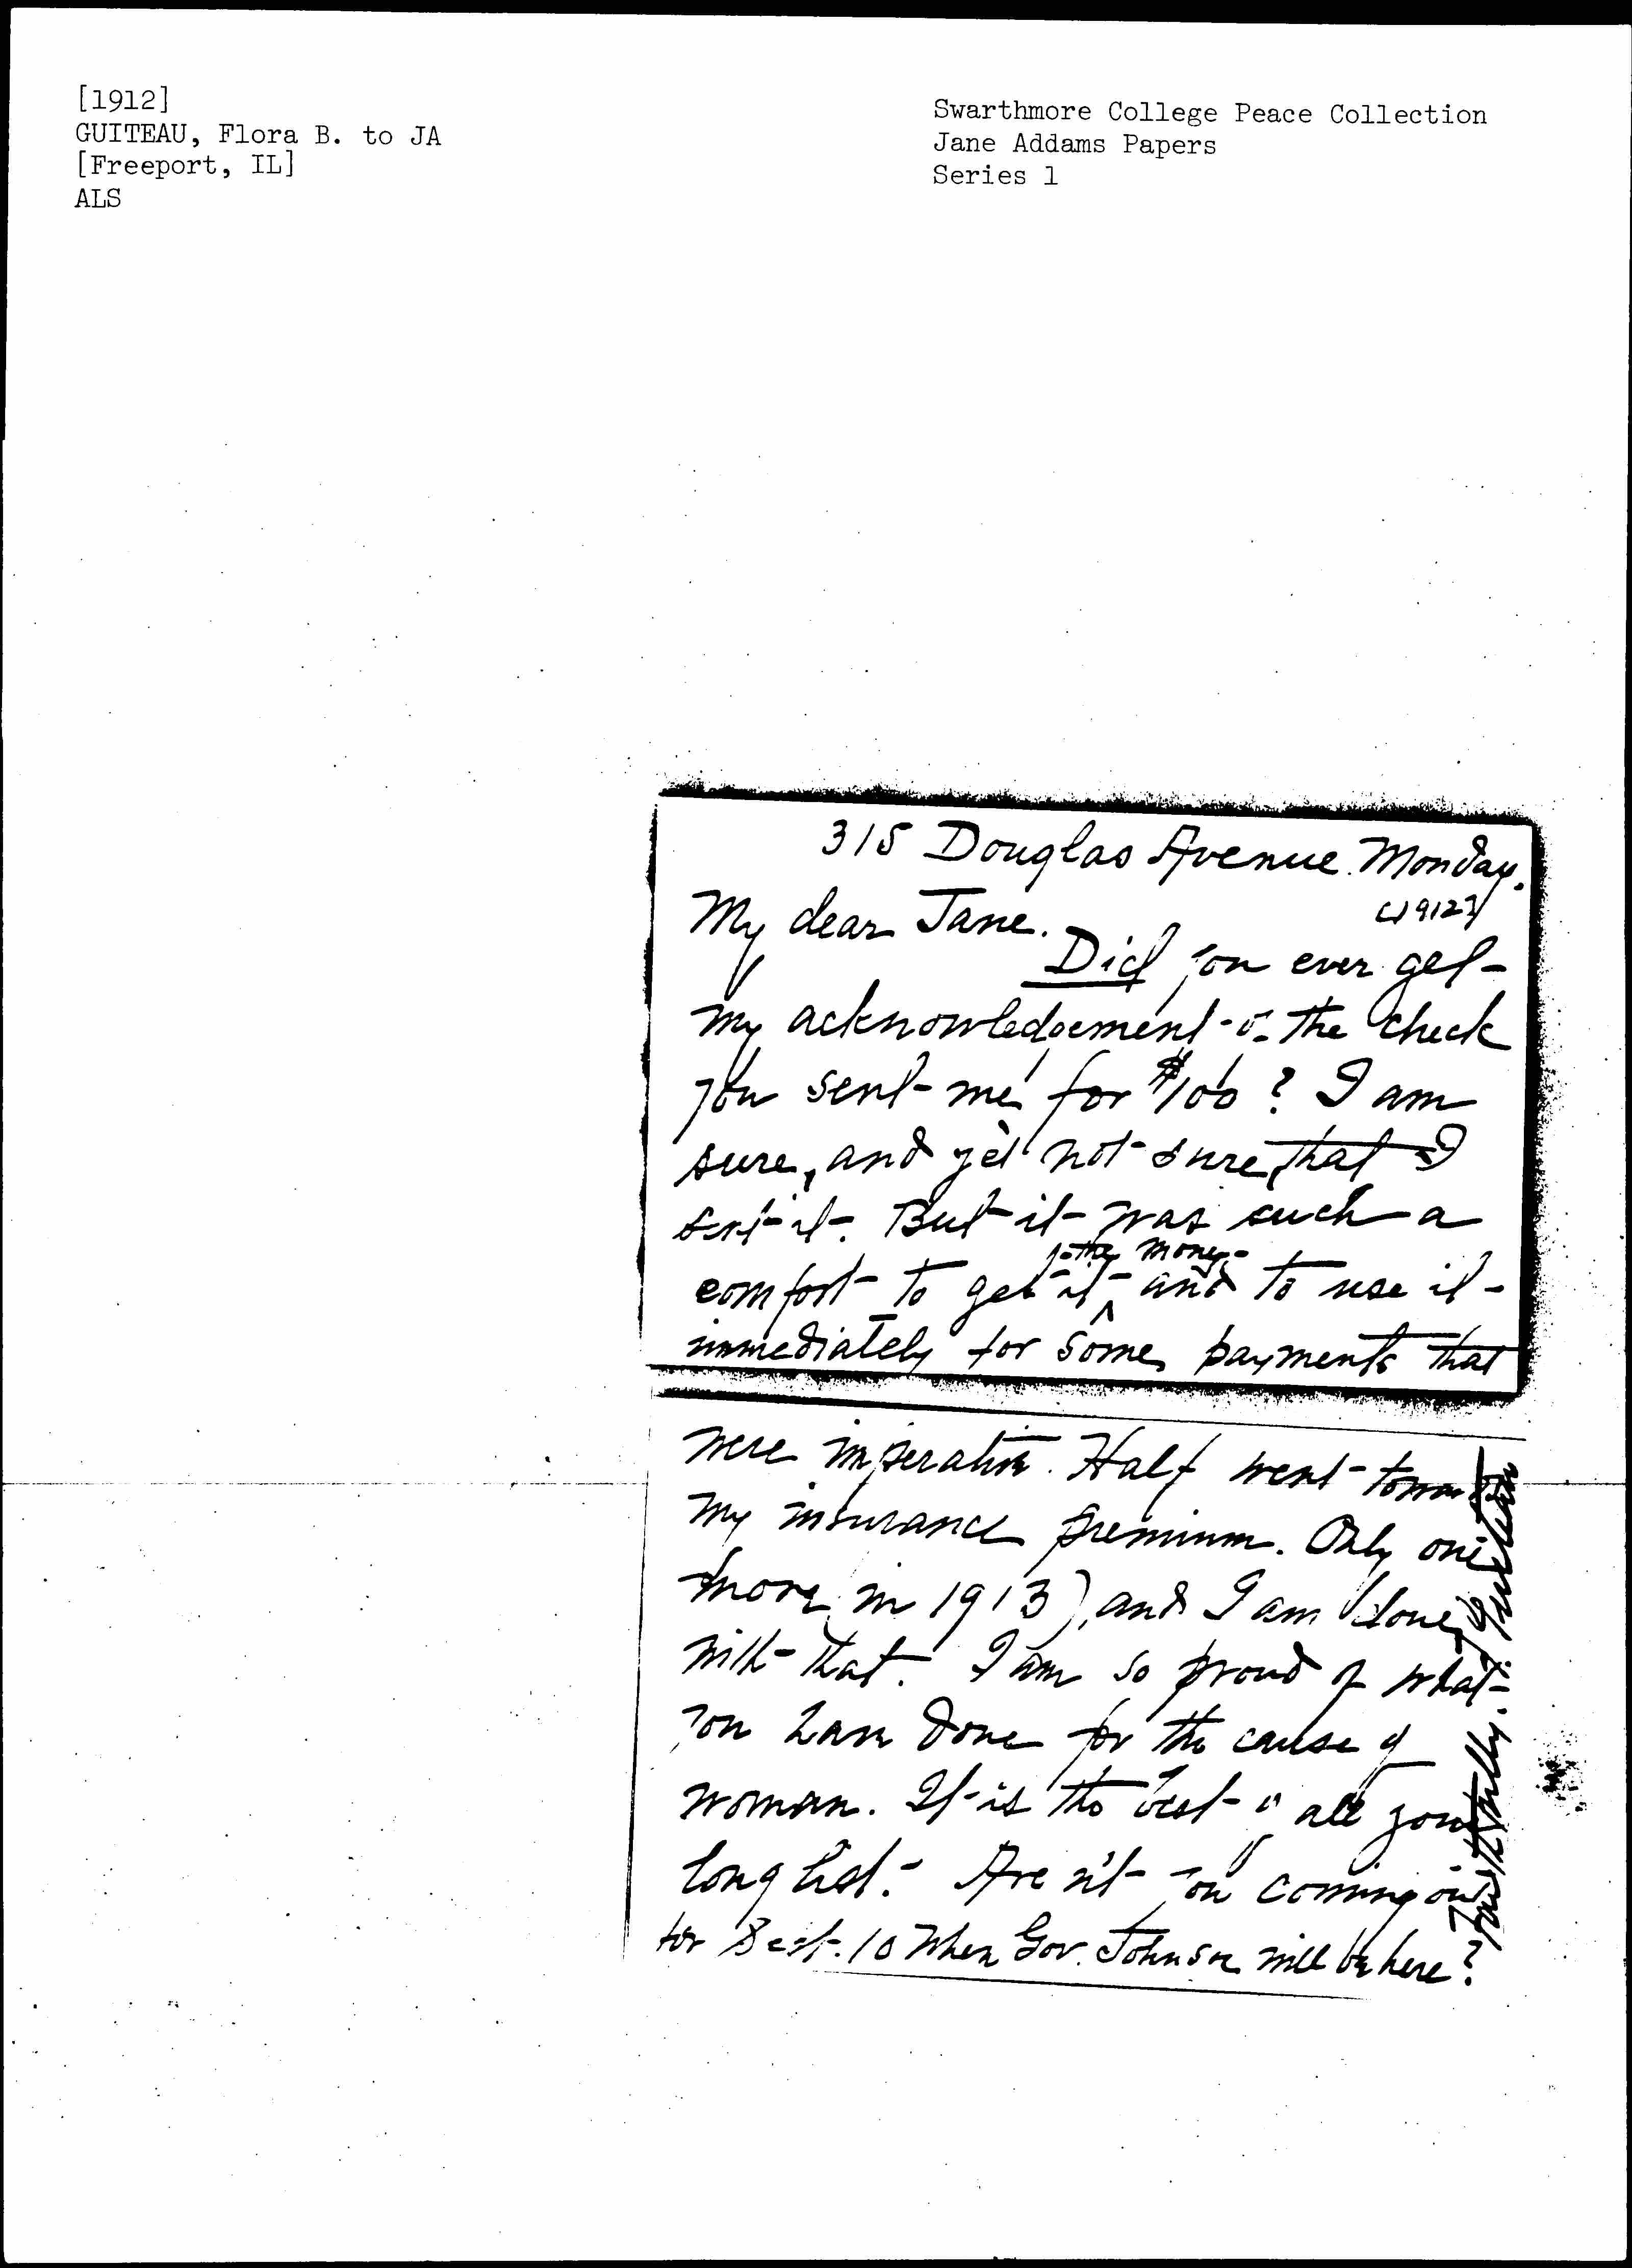 [1912]
GUITEAU, Flora B. to JA
[Freeport, IL]
ALS
Swarthmore College Peace Collection
Jane Addams Papers
Series 1
315 Douglas Avenue. Monday.
[1912]
My dear Jane.
Did you ever get
my acknowledgement of the check
you sent me for $100? I am
sure, and yet not sure, that I
sent it. But it was such a
the money
comfort to get it and to use it
immediately for some payments that
were imperative. Half went toward
my insurance premium. Only one
more in 1913), and I am done
with that. I am so proud of what
you have done for the cause of
woman. It is the best of all your
long list. Are n't you coming out
for Sept. 10 when Gov. Johnson will be here?
Faithfully. Guiteau